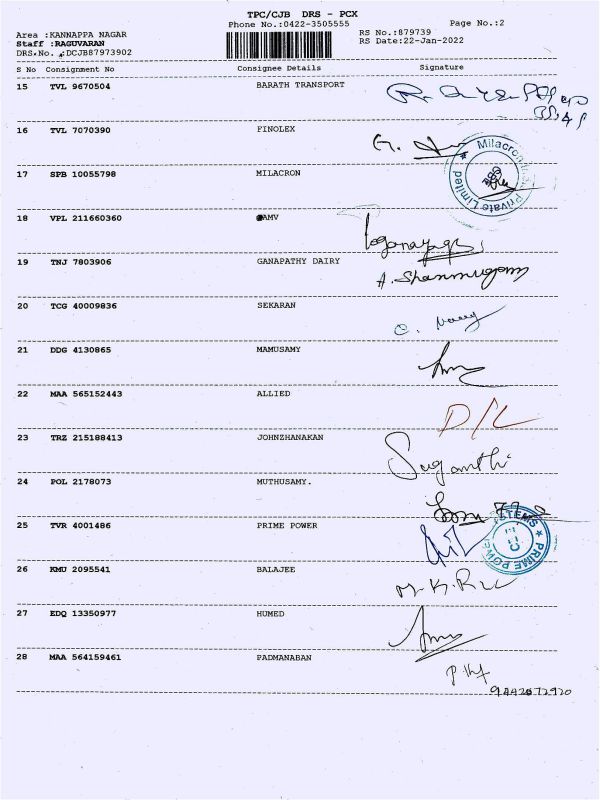 TPC/CJB DRS - PCX
Phone No.:0422-3505555
Page No.:2
Area :KANNAPPA NAGAR
RS No.:879739
Staff :RAGUVARAN
RS Date:22-Jan-2022
DRS.No. :DCJB87973902
S No Consignment No Consignee Details Signature
15 TVL 9670504 BARATH TRANSPORT
16 TVL 7070390 FINOLEX
17 SPB 10055798 MILACRON
Milacron Private Limited
18 VPL 211660360 AMV
19 TNJ 7803906 GANAPATHY DAIRY
A. Shanmugam
20 TCG 40009836 SEKARAN
21 DDG 4130865 MAMUSAMY
22 MAA 565152443 ALLIED D/L
23 TRZ 215188413 JOHNZHANAKAN Suganthi
24 POL 2178073 MUTHUSAMY.
25 TVR 4001486 PRIME POWER
PRIME POWER SYSTEMS
26 KMU 2095541 BALAJEE
27 EDQ 13350977 HUMED
28 MAA 564159461 PADMANABAN